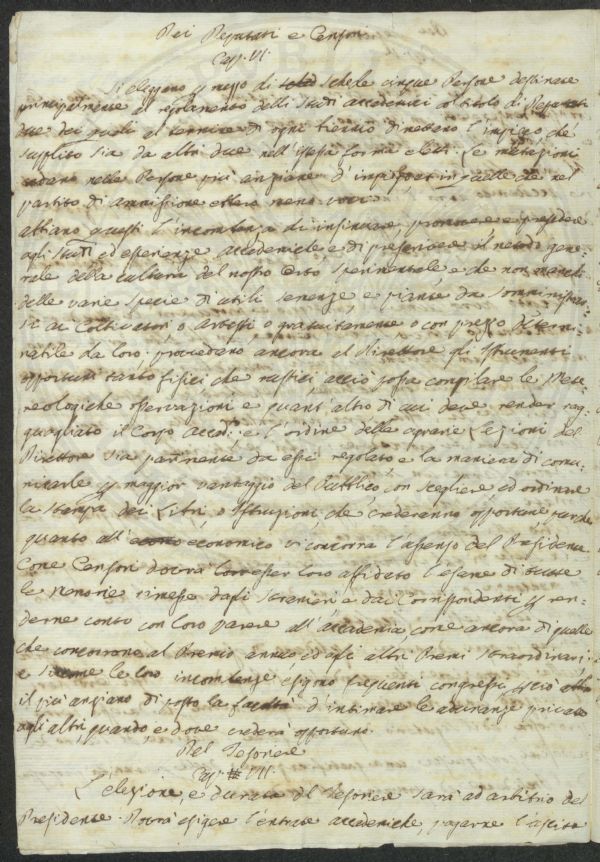 Dei Deputati e Censori
Cap. VI.
Si eleggano per mezzo di schede cinque Persone destinate
principalmente al regolamento delli Studi accademici col titolo di Deputati
due dei quali al termine di ogni triennio dimettano l'impiego, che
supplito sia da altri due nell'istessa forma eletti. Le mutazioni
cadano nelle Persone più anziane d'impiego in quelle che nel
partito di ammissione ebbero meno voti.
abbiano questi l'incombenza di insinuare, promovere e presedere
agli Studi ed esperienze accademiche e di prescrivere il metodo gene-
rale della cultura del nostro Orto sperimentale, e che non manchi
delle varie specie di utili semenze e piante da somministrar-
si ai Coltivatori, o Artisti, o gratuitamente o con prezzo determi-
nabile da loro; procedano ancora al Direttore gli Strumenti
opportuni tanto fisici che rustici, acciò possa compilare le Mete-
reologiche osservazioni e quant'altro di cui deve render rag-
guagliato il Corpo Accad. e l'ordine delle agrarie Lezioni del
Direttore sia parimente da essi regolato e la maniera di comu-
nicarle per maggior vantaggio del Pubblico con scegliere, ed ordinare
la stampa dei Libri, o Istruzioni, che crederanno opportune, purché
quanto all' economico vi concorra l'assenso del Presidente
Come Censori dovrà esser loro affidato l'esame di tutte
le Memorie rimesse dagli Stranieri e dai Corrispondenti per ren-
derne conto con loro parere all'accademia come ancora di quelle
che concorrono al Premio annuo ed agli altri Premi straordinari:
e siccome le loro incombenze esigono frequenti congressi, perciò
il più anziano di posto la facoltà d'intimare le adunanze private
agli altri, quando, e dove crederà opportuno.
Del Tesoriere
Cap. VII.
L'elezione, e durata del Tesoriere sarà ad arbitrio del
Presidente. Dovrà esigere l'entrate accademiche, pagarne l'uscite